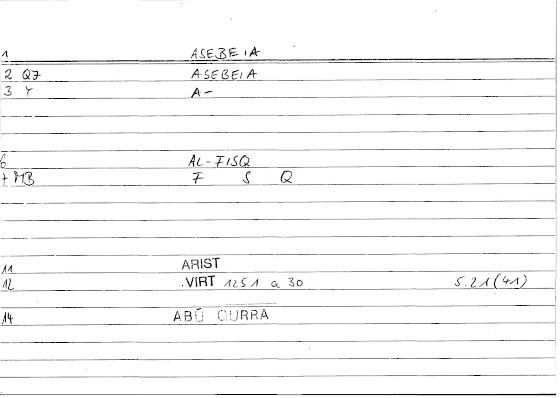 1 ASEBEIA
2 Q7 ASEBEIA
3 Y A-
6 AL-FISQ
7 MB F S Q
11 ARIST
12 .VIRT 1251 a 30 5.21(41)
14 ABŪ QURRA